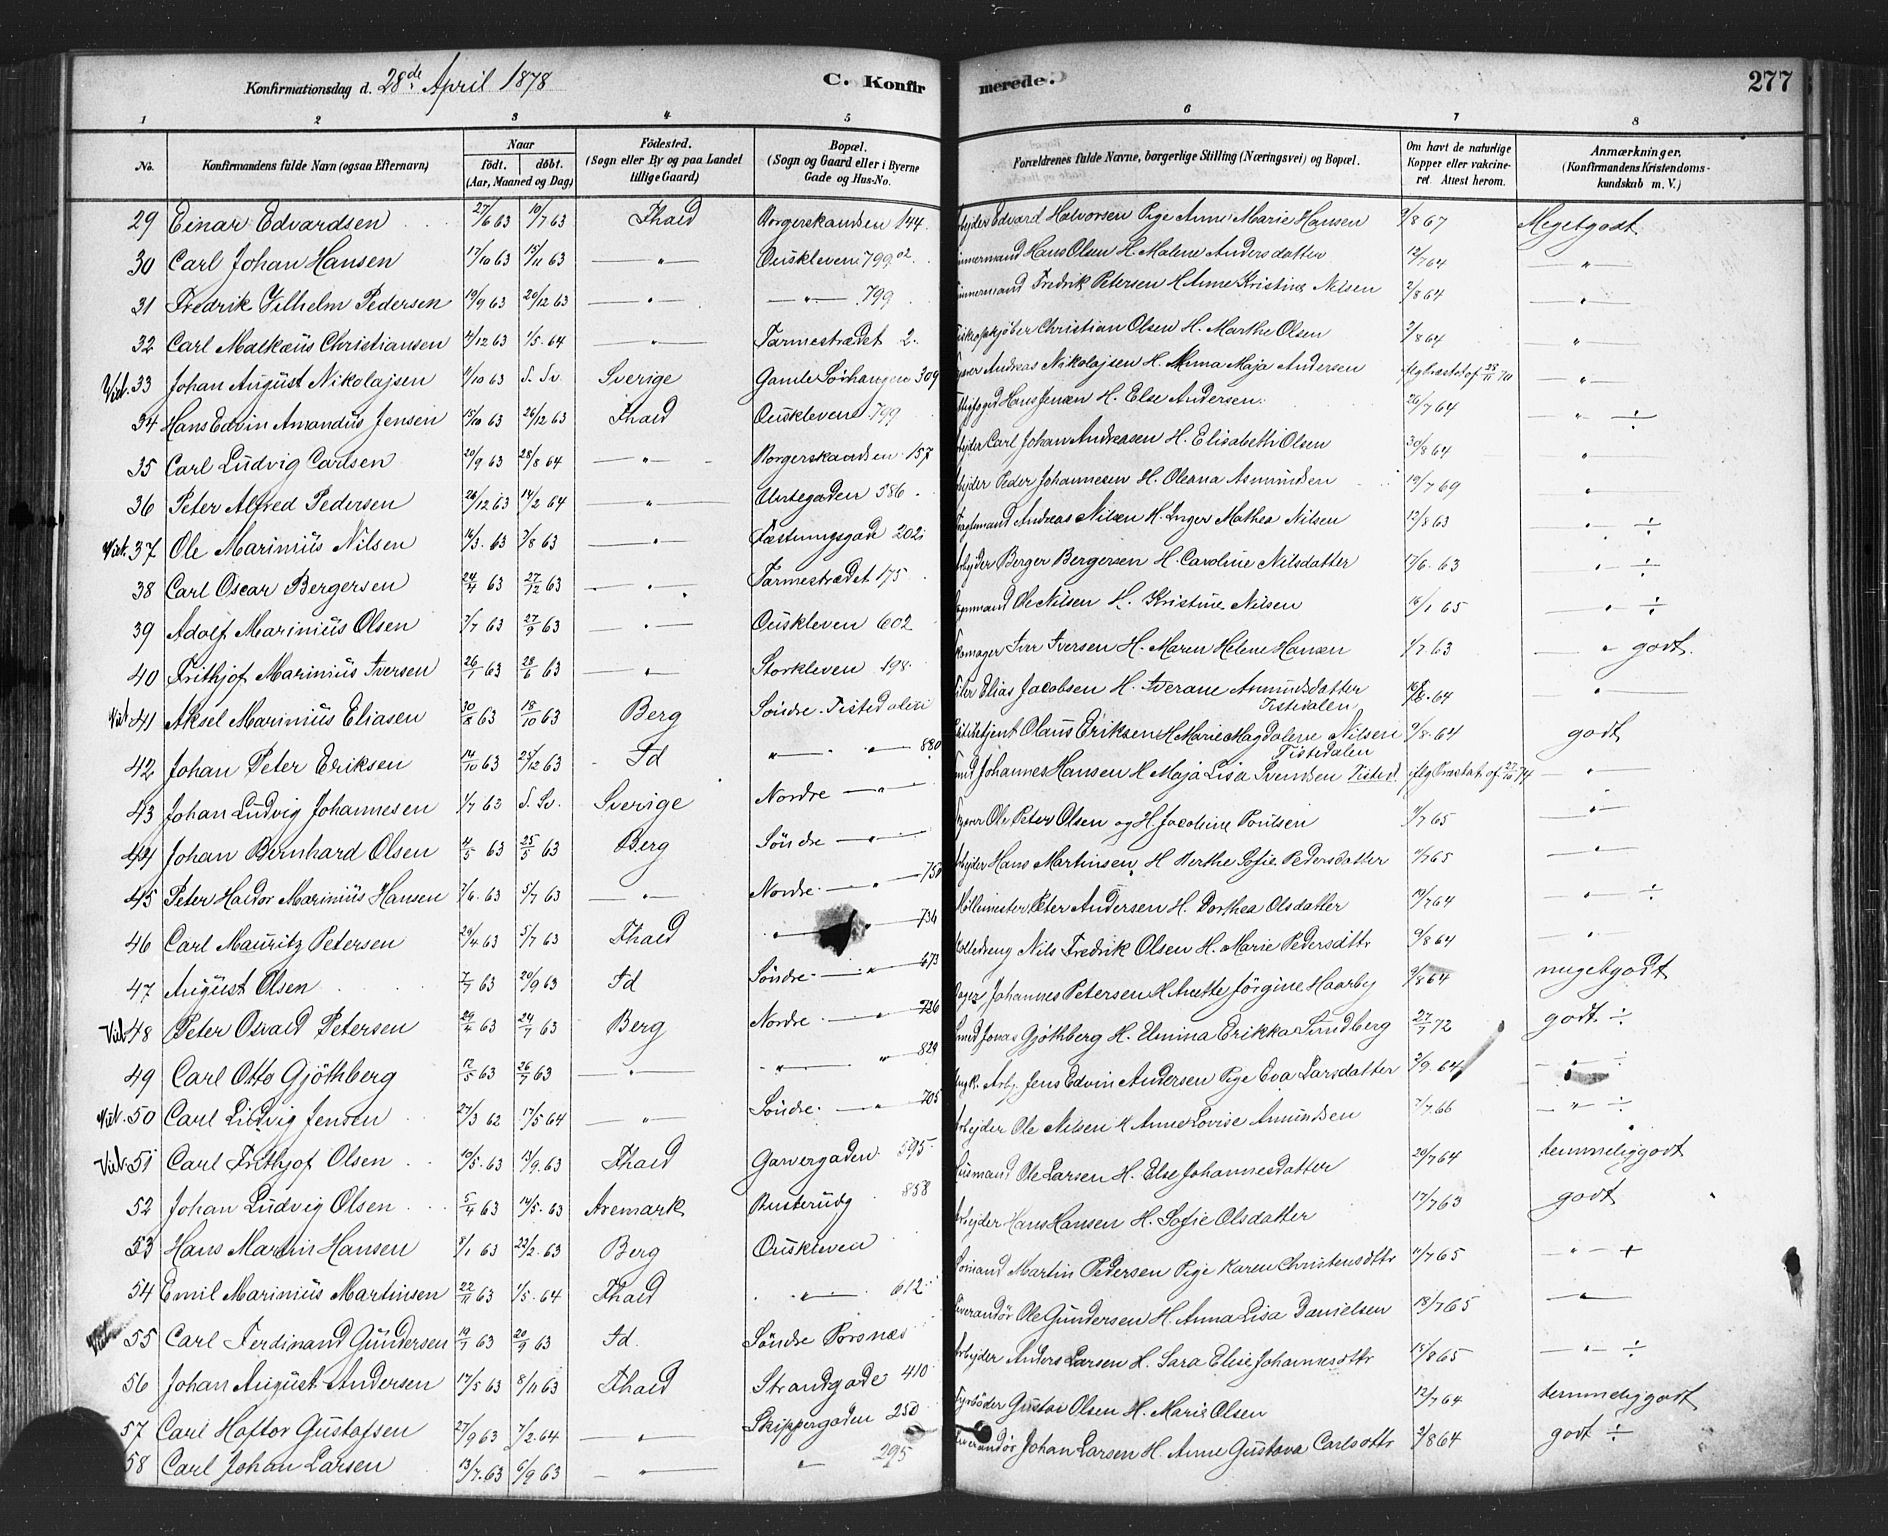 Konfirmationsdag d. 28de April 1878
C. Konfirmerede.
277
1 2 3 4 5 6 7 8
No. Konfirmandens fulde Navn (ogsaa Efternavn) Naar født. døbt. (Aar, Maaned og Dag) Fødested. (Sogn eller By og paa Landet tillige Gaard) Bopæl. (Sogn og Gaard eller i Byerne Gade og Hus-No. Forældrenes fulde Navne, borgerlige Stilling (Næringsvei) og Bopæl. Om havt de naturlige Kopper eller vakcineret Attest herom. Anmærkninger. (Konfirmandens Kristendomskundskab m. V.)
29 Einar Edvardsen 27/6 63 10/7 63 Fhald 144 Edvard Halvorsen Pige Anne Marie Hansen /8 67 Megetgodt
30 Carl Johan Hansen 17/10 63 15/11 63 —"— Ouskleven 799 02 Hans Olsen H. Malene Andersdatter 12/7 64 —"—
31 Fredrik Vilhelm Pedersen 19/9 63 20/12 63 —"— —"— 799 Fredrik Petersen H Anne Kristine Nilsen 2/8 64 —"—
32 Carl Malkæus Christiansen /12 63 1/5 64 —"— Farmestrædet 2 Christian Olsen H. Marthe Olsen 2/8 64 —"—
Vid. 33 Johan August Nikolajsen /10 63 S. Sv. Sverige Gamle 309 Andreas Nikolajsen H. Anna Maja Andersen —"—
34 Hans Edvin Amandus Jensen 15/10 63 26/12 63 Fhald Ouskleven 799 Hans Jensen H. Else Andersen 26/7 64 —"— ÷
35 Carl Ludvig Carlsen 20/9 63 28/8 64 —"— 157 Carl Johan Andreasen H. Elisabeth Olsen 30/8 64 "
36 Peter Alfred Pedersen 26/12 63 14/2 64 —"— Urtegaden 586 Peder Johannesen H. Oleana Asmundsen 19/7 69 "
Vid. 37 Ole Marinius Nilsen 14/3 63 /8 63 —"— Fæstningsgade 202 Andreas Nilsen H. Inger Mathea Nilsen 12/8 63 —"— ÷
38 Carl Oscar Bergersen 24/4 63 27/12 63 —"— Farmestrædet 175 Berger Bergersen H. Caroline Nilsdatter 17/6 63 —"— ÷
39 Adolf Marinius Olsen /7 63 27/9 63 —"— Ouskleven 602 Ole Nilsen H. Kristine Nilsen 16/1 65 —"— ÷
40 Frithjof Marinius Iversen 26/1 63 28/6 63 —"— Storkleven 198 Iver Iversen H. Maren Helene Hansen 1/7 63 —"— godt.
Vid. 41 Aksel Marinius Eliasen 30/8 63 18/10 63 Berg Søndre Tistedalen Elias Jacobsen H. Iverane Asmundsdatter Tistedalen 64 —"—
42 Johan Peter Eriksen 14/10 63 25/12 63 Id "—"— 880 Olaus Eriksen H Marie Magdalene Nilsen Tistedalen 9/8 64 godt
43 Johan Ludvig Johannesen 1/7 63 S. Sv. Sverige Nordre —"— Johannes Hansen H Maja Lisa Svendsen Tisted. —"—
44 Johan Bernhard Olsen 4/5 63 25/5 63 Berg Søndre —"— Ole Peter Olsen og H. Jacobine Poulsen /7 65 —"—
45 Peter Haldor Marinius Hansen /6 63 5/7 63 —"— Nordre —"— 750 Hans Martinsen H Berthe Sofie Pedersdatter /7 65 —"—
46 Carl Mauritz Petersen 29/4 63 5/7 63 Fhald "—"— 736 Møllemester Peter Andersen H. Dorthea Olsdatter 19/7 64 —"— ÷
47 August Olsen 7/7 63 20/9 63 Id Søndre —"— 673 Nils Fredrik Olsen H. Marie Pedersdttr 9/8 64 —"—
Vid. 48 Peter Osvald Petersen 29/4 63 24/7 63 Berg Nordre —"— 736 Johannes Petersen H Anette Jørgine Haarby 9/8 64 megetgodt
49 Carl Otto Gjøthberg 12/5 63 26/7 63 —"— "—"— 829 Jonas Gjøthberg H. Elmina Erikka Sundberg 27/7 72 godt ÷
Vid. 50 Carl Ludvig Jensen 27/3 62 17/5 64 —"— Søndre —"— 705 Jens Edvin Andersen Pige Eva Larsdatter 2/9 64 —"— ÷
Vid. 51 Carl Frithjof Olsen 10/5 63 13/9 63 Fhald Garvergaden 595 Ole Nilsen H Anne Lovise Amundsen /7 66 —"— ÷
52 Johan Ludvig Olsen 5/4 63 14/5 63 Aremark Busterudg 858 Husmand Ole Larsen H. Else Johannesdatter 20/7 64 temmeliggodt
53 Hans Martin Hansen 8/1 63 22/2 63 Berg Ouskleven Hans Hansen H. Sofie Olsdatter 17/7 63 godt
54 Emil Marinius Martinsen 22/11 63 1/5 64 Fhald —"— 612 Martin Pedersen Pige Karen Christensdttr /7 65 —"— +
Vid. 55 Carl Ferdinand Gundersen 19/7 63 20/9 63 Id. Søndre Porsnæs Ole Gundersen H. Anna Lisa Danielsen 13/7 65 —"—
56 Johan August Andersen 17/5 63 8/11 63 Fhald Strandgade 410 Anders Larsen H. Sara Elise Johannesdttr 15/8 65 —"— ÷
57 Carl Haftor Gustafsen 27/9 63 7/2 64 —"— Skippergaden 250 Gustav Olsen H. Marie Olsen 12/7 64 temmeliggodt
58 Carl Johan Larsen 13/7 63 6/9 63 —"— " 295 Johan Larsen H. Anne Gustava Carlsdttr 2/8 64 godt ÷